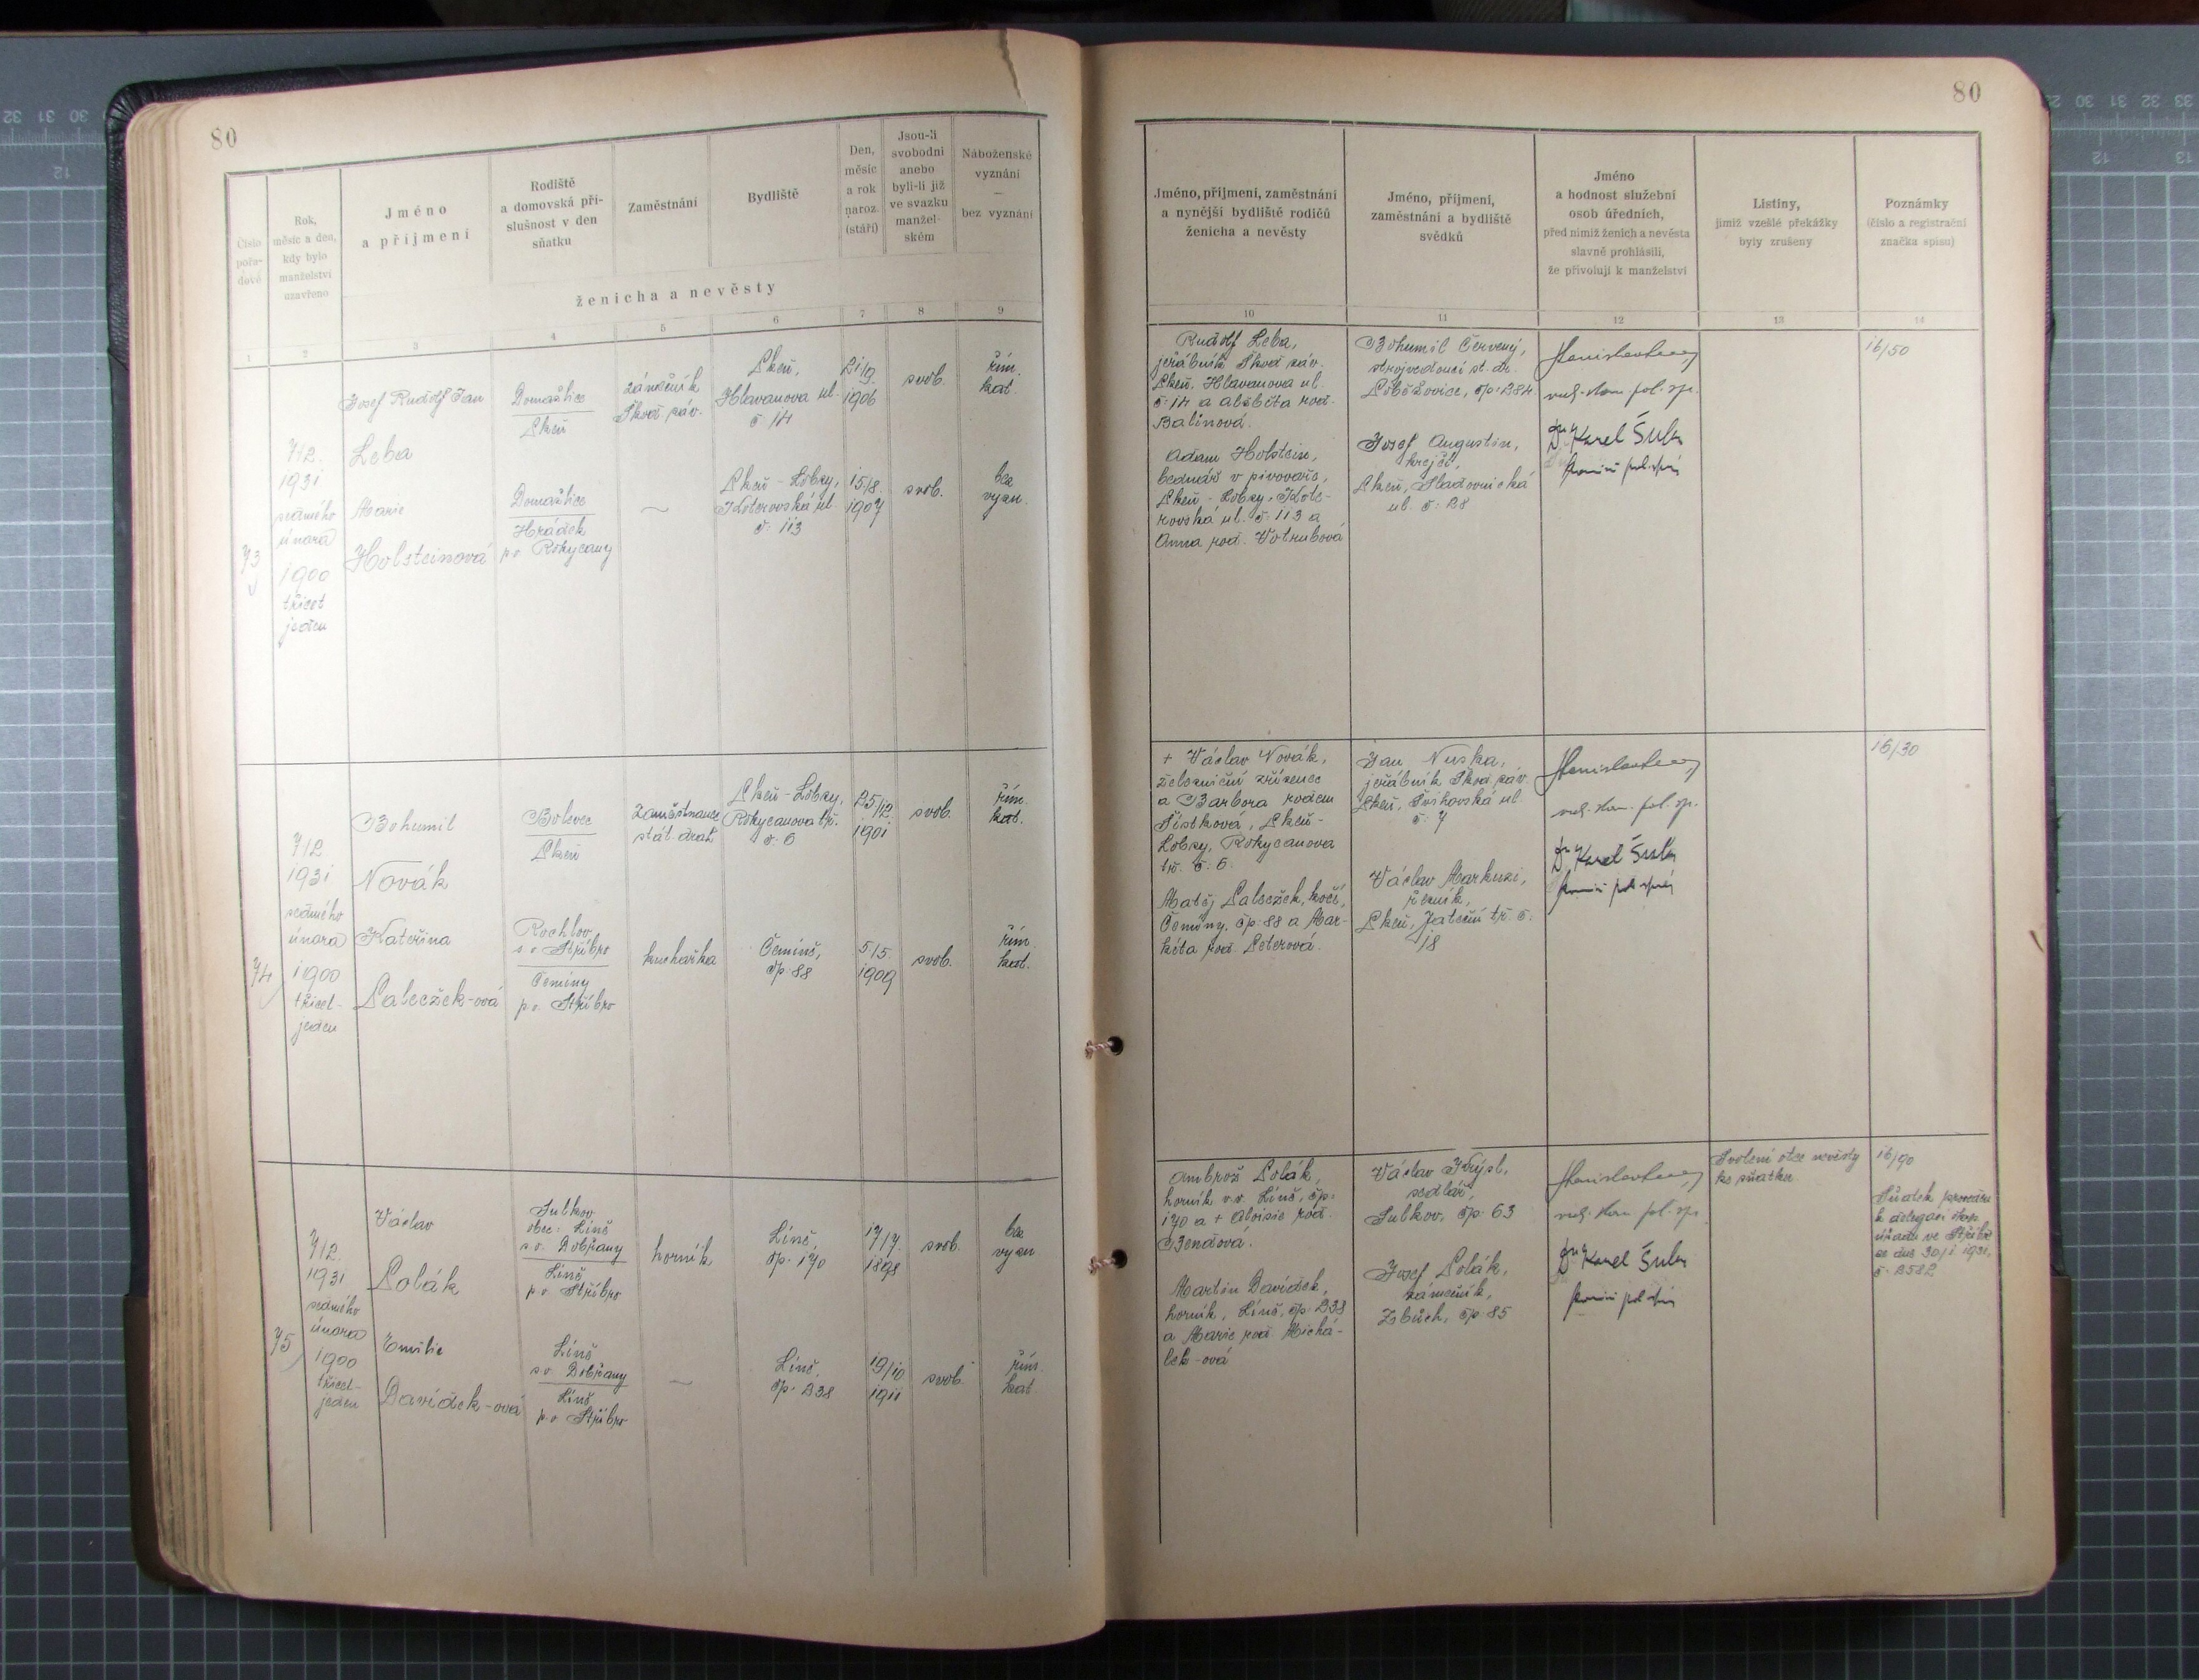 80
Číslo
pořa-
dové
Rok,
měsíc a den,
kdy bylo
manželství
uzavřeno
Jméno
a příjmení
Rodiště
a domovská pří-
slušnost v den
sňatku
Zaměstnání
Bydliště
Den,
měsíc
a rok
naroz.
(stáří)
Jsou-li
svobodni
anebo
byli-li již
ve svazku
manžel-
ském
Náboženské
vyznání
—
bez vyznání
ženicha a nevěsty
1 2 3 4 5 6 7 8 9
73
7/2.
1931
sedmého
února
1900
třicet
jeden
Josef Rudolf Jan
Leba
Domažlice
Plzeň
zámečník
Škod. záv.
Plzeň,
Hlavanova ul.
č. 14
21/9.
1906
svob.
řím.
kat.
Marie
Holsteinová
Domažlice
Hrádek
p.o. Rokycany
—
Plzeň - Lobzy,
Koterovská ul.
č. 113
15/8.
1907
svob.
bez
vyzn.
74
7/2
1931
sedmého
února
1900
třicet-
jeden
Bohumil
Novák
Bolevec
Plzeň
Zaměstnanec
stát. drah
Plzeň - Lobzy,
Rokycanova tř.
č. 6
25/12.
1901
svob.
řím.
kat.
Kateřina
Paleček-ová
Rochlov
s.o. Stříbro
Čeminy
p.o. Stříbro
kuchařka
čp. 88
5/5.
1909
svob.
řím.
kat.
75
7/2.
1931
sedmého
února
1900
třicet-
jeden
Václav
Polák
Sulkov
obec: Líně
s.o. Dobřany
Líně
p.o. Stříbro
horník
Líně,
čp. 170
17/7.
1898
svob.
bez
vyzn
Emilie
Davídek-ová
Líně
s.o. Dobřany
Líně
p.o. Stříbro
—
Líně,
čp. 238
19/10
1911
svob.
řím.
kat.
80
Jméno, příjmení, zaměstnání
a nynější bydliště rodičů
ženicha a nevěsty
Jméno, příjmení,
zaměstnání a bydliště
svědků
Jméno
a hodnost služební
osob úředních,
před nimiž ženich a nevěsta
slavně prohlásili,
že přivolují k manželství
Listiny,
jimiž vzešlé překážky
byly zrušeny
Poznámky
(číslo a registrační
značka spisu)
10 11 12 13 14
Rudolf Leba,
jeřábník Škod. záv.
Plzeň, Hlavanova ul.
č. 14 a Alžběta rod.
Balínová.
Adam Holstein,
bednář v pivovaře,
Plzeň - Lobzy, Kote-
rovská ul. č. 113 a
Anna rod. Votrubová
Bohumil Červený,
strojvedoucí st. dr.
čp. 284
Josef Augustin,
krejčí,
Plzeň, Sladovnická
ul. č. 28
pol. sp.
Dr. Karel Šula
16/50
+ Václav Novák,
železniční zřízenec
a Barbora rodem
Šístková, Plzeň -
Lobzy, Rokycanova
tř. č. 6.
Matěj Paleček, kočí,
Čeminy, čp. 88 a Mar-
kéta rod. Peterová.
Jan Nuska,
jeřábník Škod. záv.
Plzeň, Švihovská ul.
č. 7
Václav Markuzi,
řezník,
Plzeň, Jateční tř. č.
18
pol. sp.
Dr. Karel Šula
16/30
Ambrož Polák,
horník v.v. Líně, čp.
170 a + Aloisie rod.
Bendova.
Martin Davídek,
horník, Líně, čp. 238
a Marie rod. Michá-
lek-ová
Václav Krýsl,
sedlář,
Sulkov, čp. 63
Josef Polák,
zámečník,
Zbůch, čp 85
pol. sp.
Dr. Karel Šula
Svolení otce nevěsty
ke sňatku.
16/90
Sňatek proveden
k delegaci okres.
úřadu ve Stříbře
ze dne 30/1 1931,
č. 2582